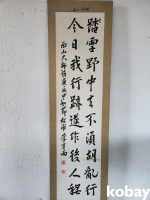 踏雪野中去不須胡亂行
今日我行跡遂作後人程
西山大師詩
kobay